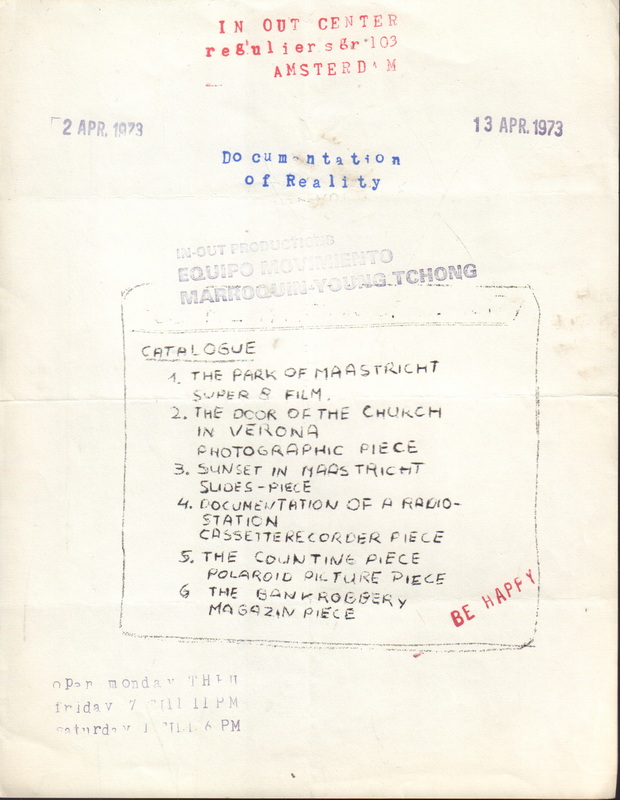 IN OUT CENTER
reguliersgr 103
AMSTERDAM
2 APR. 1973
13 APR. 1973
Documentation
of Reality
IN-OUT PRODUCTIONS
EQUIPO MOVIMIENTO
MARROQUIN-YOUNG TCHONG
CATALOGUE
1. THE PARK OF MAASTRICHT
SUPER 8 FILM.
2. THE DOOR OF THE CHURCH
IN VERONA
PHOTOGRAPHIC PIECE
3. SUNSET IN MAASTRICHT
SLIDES-PIECE
4. DOCUMENTATION OF A RADIO-
STATION
CASSETTERECORDER PIECE
5. THE COUNTING PIECE
POLAROID PICTURE PIECE
6 THE BANKROBBERY
MAGAZIN PIECE
BE HAPPY
open monday THRU
friday 7 TILL 11 PM
saturday 1 TILL 6 PM